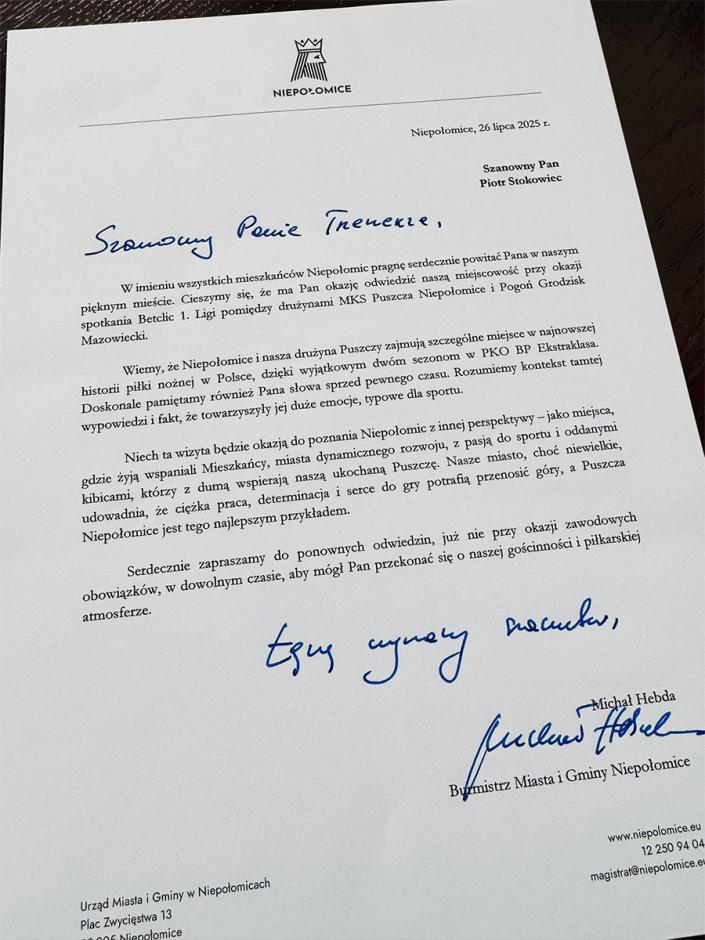 NIEPOŁOMICE
Niepołomice, 26 lipca 2025 r.
Szanowny Pan
Piotr Stokowiec
Szanowny Panie Trenerze,
W imieniu wszystkich mieszkańców Niepołomic pragnę serdecznie powitać Pana w naszym
pięknym mieście. Cieszymy się, że ma Pan okazję odwiedzić naszą miejscowość przy okazji
spotkania Betclic 1. Ligi pomiędzy drużynami MKS Puszcza Niepołomice i Pogoń Grodzisk
Mazowiecki.
Wiemy, że Niepołomice i nasza drużyna Puszczy zajmują szczególne miejsce w najnowszej
historii piłki nożnej w Polsce, dzięki wyjątkowym dwóm sezonom w PKO BP Ekstraklasa.
Doskonale pamiętamy również Pana słowa sprzed pewnego czasu. Rozumiemy kontekst tamtej
wypowiedzi i fakt, że towarzyszyły jej duże emocje, typowe dla sportu.
Niech ta wizyta będzie okazją do poznania Niepołomic z innej perspektywy – jako miejsca,
gdzie żyją wspaniali Mieszkańcy, miasta dynamicznego rozwoju, z pasją do sportu i oddanymi
kibicami, którzy z dumą wspierają naszą ukochaną Puszczę. Nasze miasto, choć niewielkie,
udowadnia, że ciężka praca, determinacja i serce do gry potrafią przenosić góry, a Puszcza
Niepołomice jest tego najlepszym przykładem.
Serdecznie zapraszamy do ponownych odwiedzin, już nie przy okazji zawodowych
obowiązków, w dowolnym czasie, aby mógł Pan przekonać się o naszej gościnności i piłkarskiej
atmosferze.
Łączę wyrazy szacunku,
Michał Hebda
Michał Hebda
Burmistrz Miasta i Gminy Niepołomice
www.niepolomice.eu
12 250 94 04
magistrat@niepolomice.eu
Urząd Miasta i Gminy w Niepołomicach
Plac Zwycięstwa 13
Niepołomice